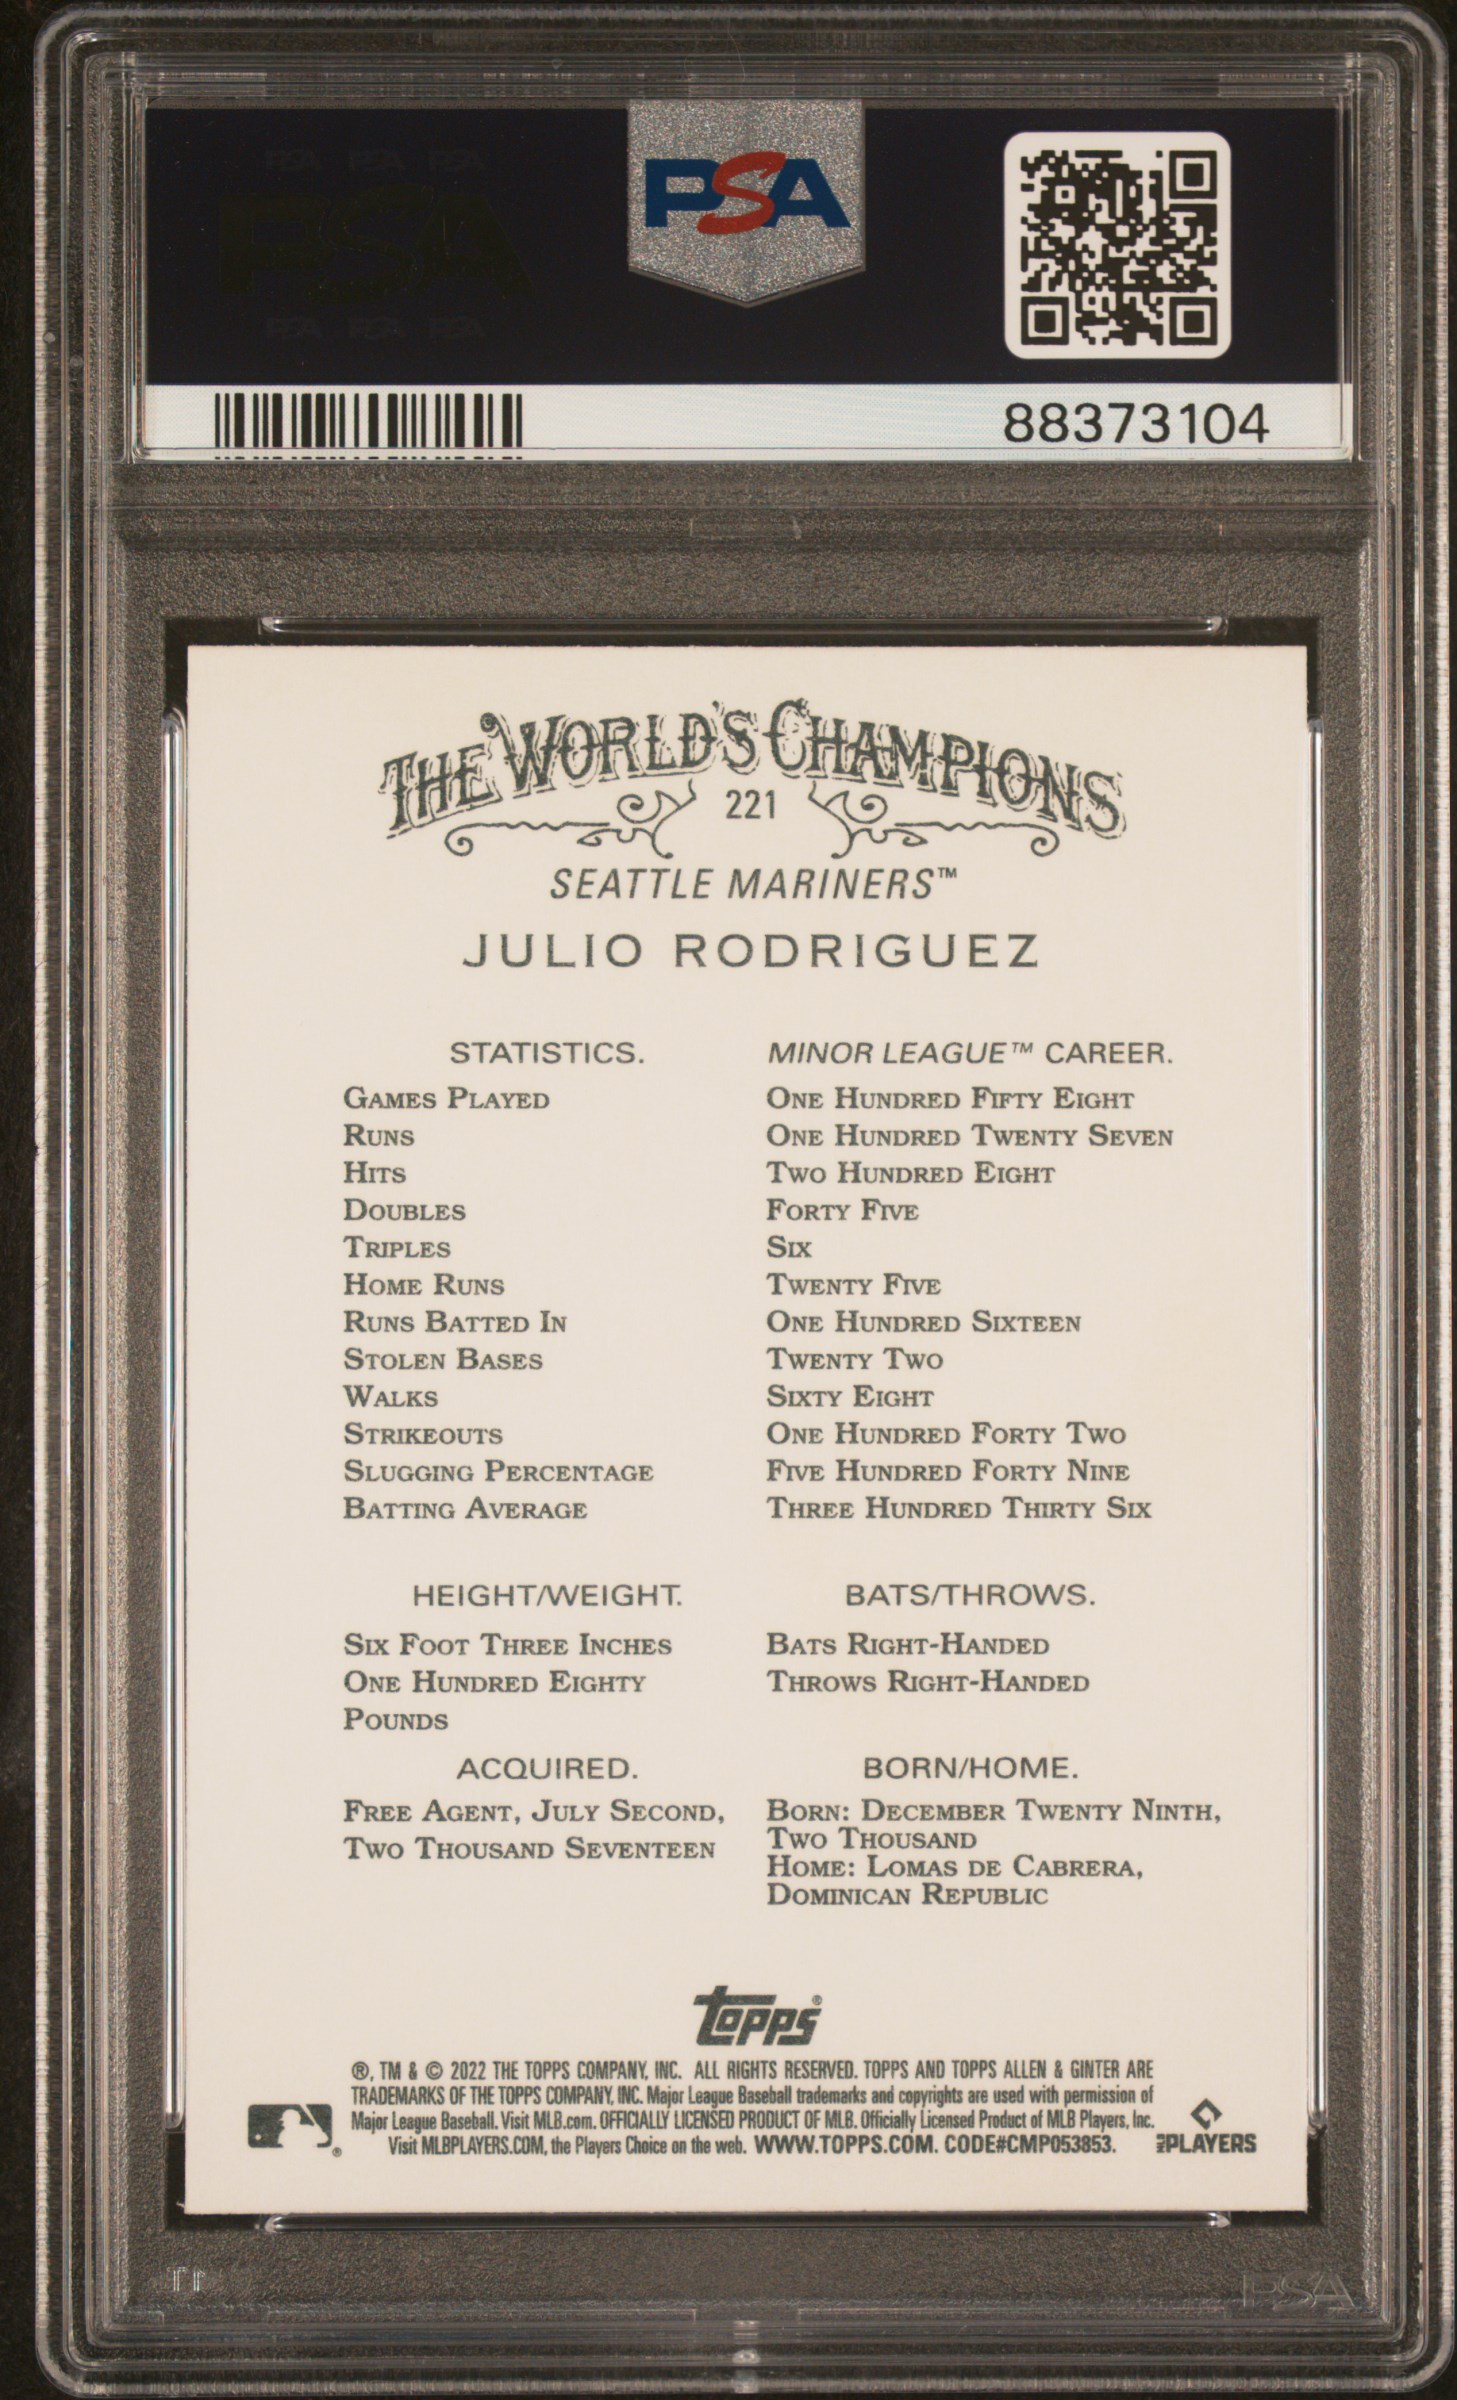 PSA PSA PSA
PSA
PSA PSA PSA
PSA
88373104
THE WORLD'S CHAMPIONS
221
SEATTLE MARINERS™
JULIO RODRIGUEZ
STATISTICS. MINOR LEAGUE™ CAREER.
GAMES PLAYED ONE HUNDRED FIFTY EIGHT
RUNS ONE HUNDRED TWENTY SEVEN
HITS TWO HUNDRED EIGHT
DOUBLES FORTY FIVE
TRIPLES SIX
HOME RUNS TWENTY FIVE
RUNS BATTED IN ONE HUNDRED SIXTEEN
STOLEN BASES TWENTY TWO
WALKS SIXTY EIGHT
STRIKEOUTS ONE HUNDRED FORTY TWO
SLUGGING PERCENTAGE FIVE HUNDRED FORTY NINE
BATTING AVERAGE THREE HUNDRED THIRTY SIX
HEIGHT/WEIGHT.
SIX FOOT THREE INCHES
ONE HUNDRED EIGHTY
POUNDS
BATS/THROWS.
BATS RIGHT-HANDED
THROWS RIGHT-HANDED
ACQUIRED.
FREE AGENT, JULY SECOND,
TWO THOUSAND SEVENTEEN
BORN/HOME.
BORN: DECEMBER TWENTY NINTH,
TWO THOUSAND
HOME: LOMAS DE CABRERA,
DOMINICAN REPUBLIC
topps®
®, TM & © 2022 THE TOPPS COMPANY, INC. ALL RIGHTS RESERVED. TOPPS AND TOPPS ALLEN & GINTER ARE
TRADEMARKS OF THE TOPPS COMPANY, INC. Major League Baseball trademarks and copyrights are used with permission of
Major League Baseball. Visit MLB.com. OFFICIALLY LICENSED PRODUCT OF MLB. Officially Licensed Product of MLB Players, Inc.
Visit MLBPLAYERS.COM, the Players Choice on the web. WWW.TOPPS.COM. CODE#CMP053853.
®
MLB PLAYERS
PSA